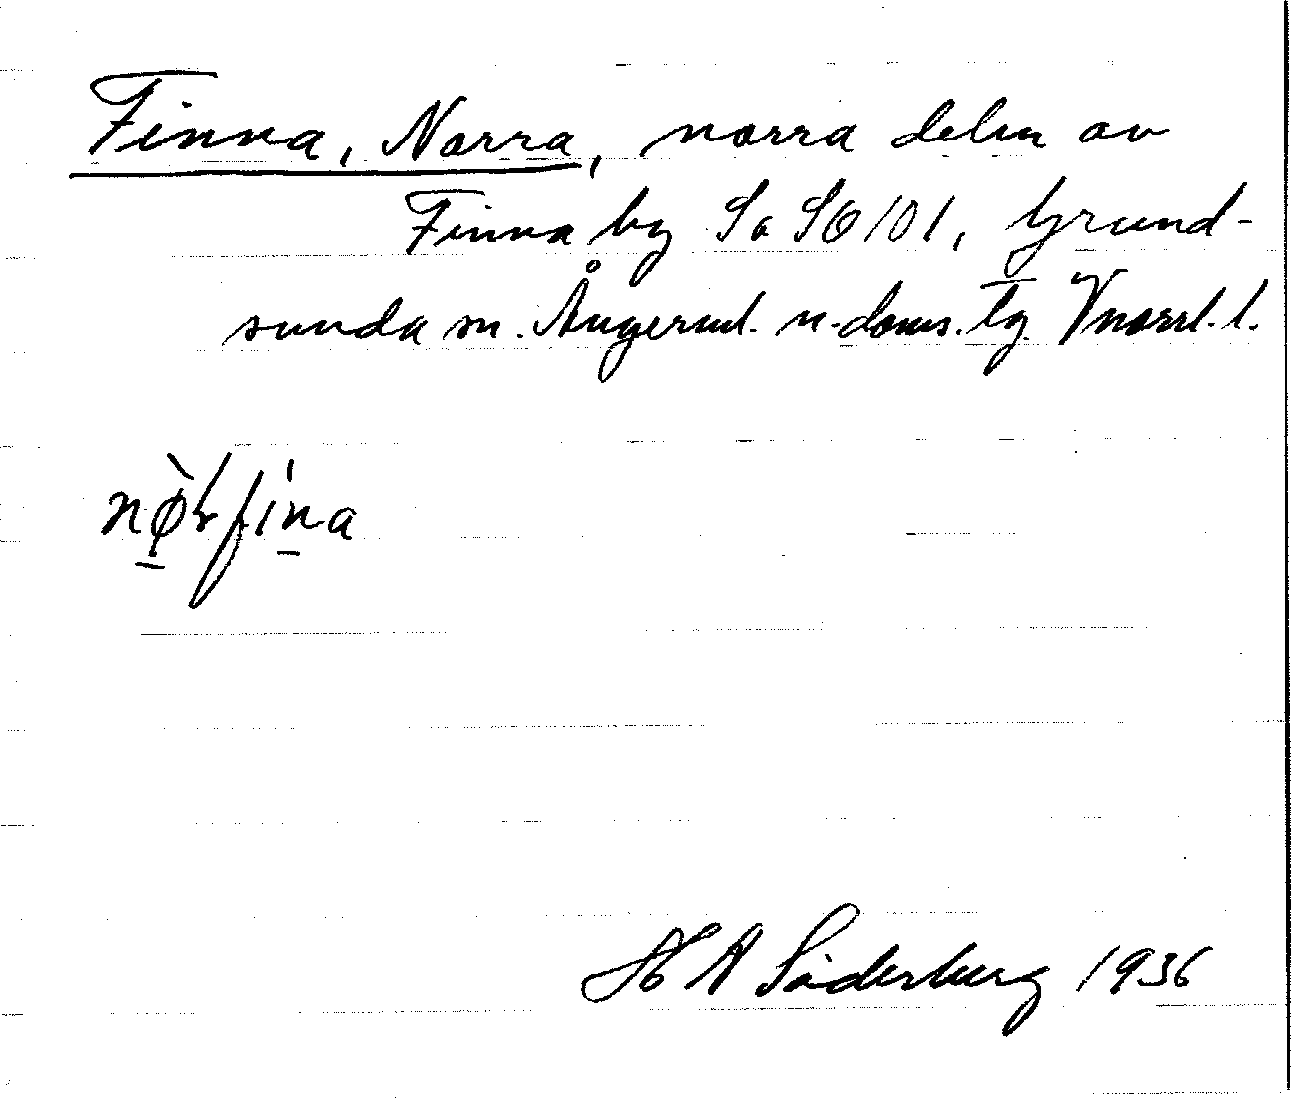 Finna, Norra, norra delen av
Finna by Sa SO 101, Grund-
sunda sn. Ångerml. n. doms. tg. Vnorrl. l.
nø̀rfína
H A Söderberg 1936